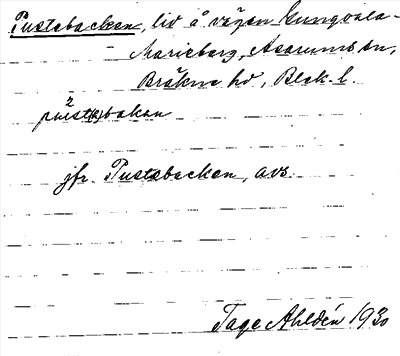 Pustebacken, lid å vägen Gungvala-
Marieberg, Asarums sn,
Bräkne hd, Blek. l.
jfr. Pustebacken, avs.
Tage Ahldén 1930